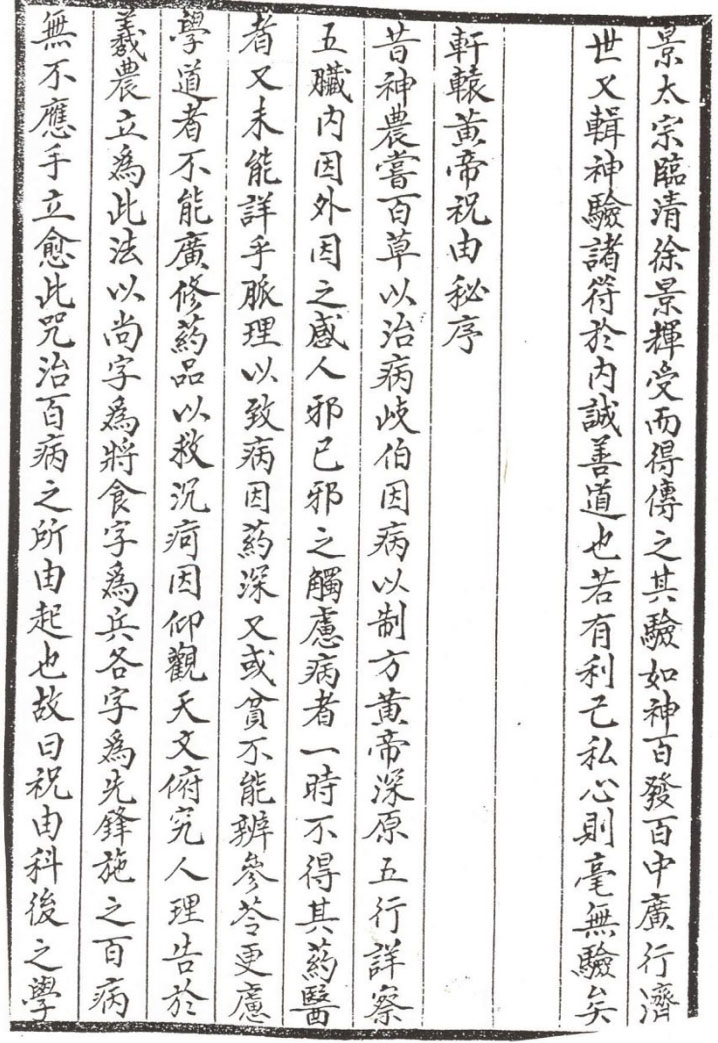 景太宗臨清徐景輝受而得傳之其驗如神百發百中廣行濟
世又輯神驗諸符於內誠善道也若有利己私心則毫無驗矣
軒轅黃帝祝由秘序
昔神農嘗百草以治病岐伯因病以制方黃帝深原五行詳察
五臟內因外因之感人邪己邪之觸慮病者一時不得其葯醫
者又未能詳乎脈理以致病因葯深又或貧不能辨參苓更慮
學道者不能廣修葯品以救沉疴因仰觀天文俯究人理告於
羲農立爲此法以尚字爲將食字爲兵各字爲先鋒施之百病
無不應手立愈此咒治百病之所由起也故曰祝由科後之學